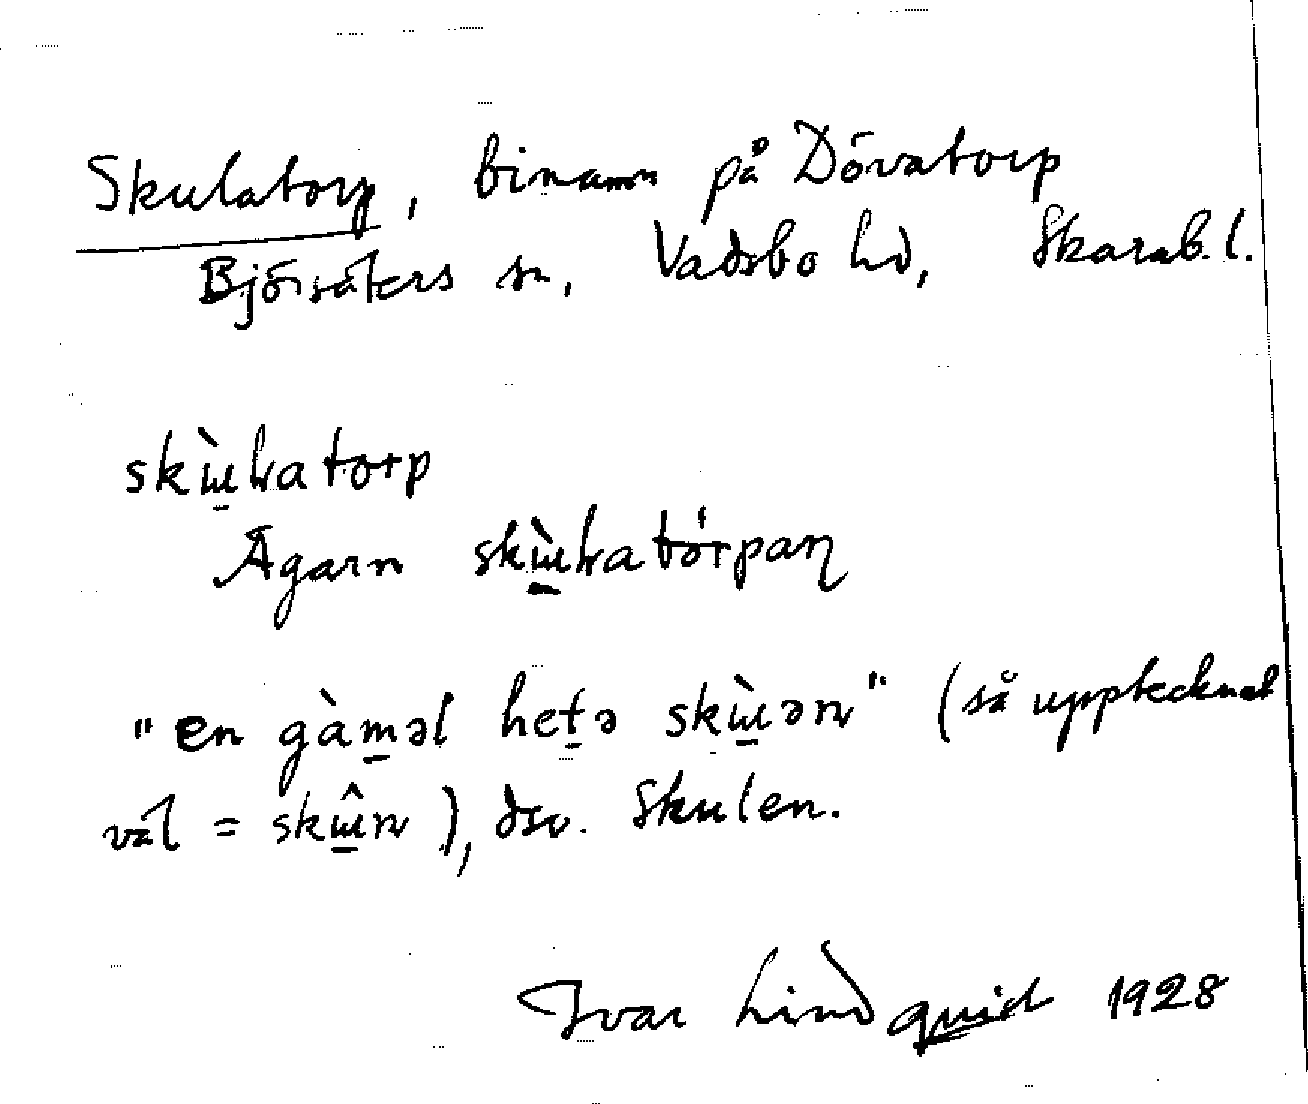 Skulatorp, binamn på Dövatorp
Björsäters sn, Vadsbo hd, Skarab. l.
skɯ̀ƚatorp
Ägarn skɯ̀ƚatórpaɳ
"en gàməl hetə skɯ̀ən" (så upptecknat
väl = skɯ̂n), dsv. Skulen.
Ivar Lindquist 1928